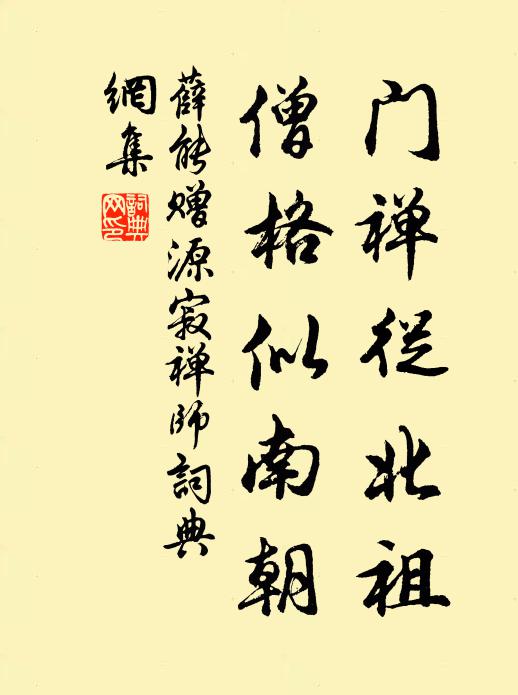 门禅從北祖
僧格似南朝
薛能赠源寂禅师詞典
網集
詞典网印